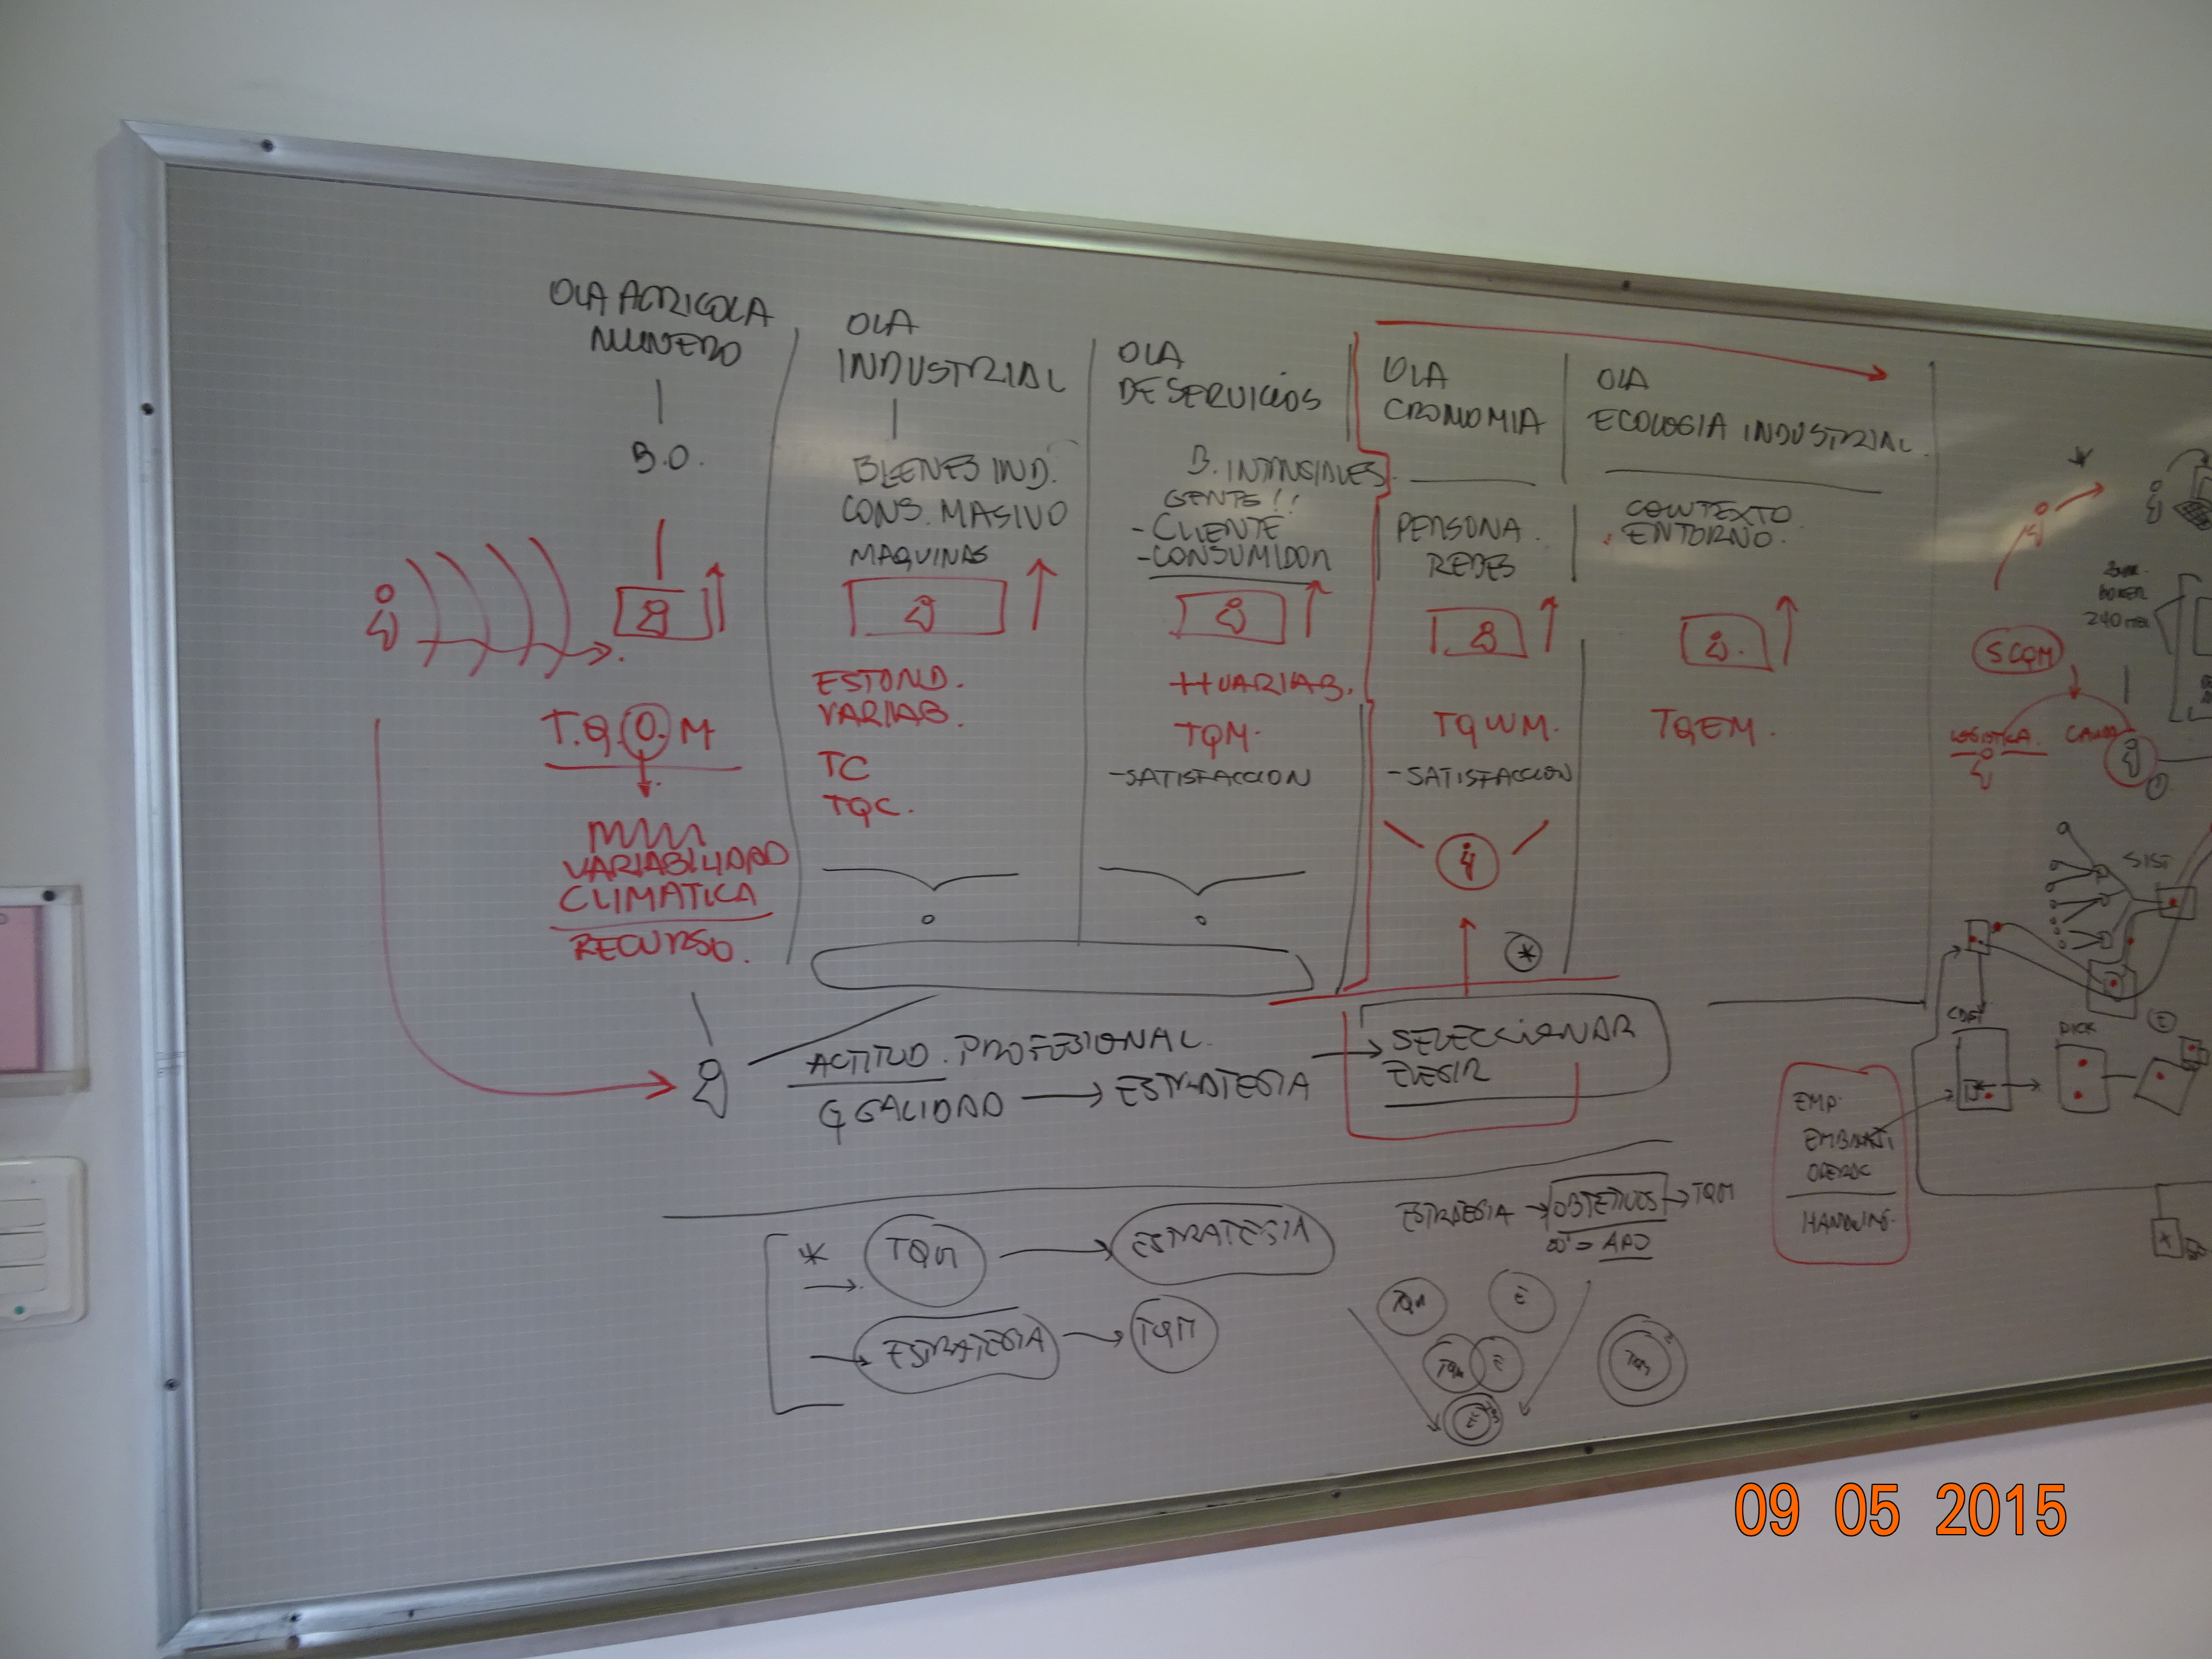 OLA AGRICOLA
MINERO
B.O.
T.Q.O.M
VARIABILIDAD
CLIMATICA
RECURSO.
OLA
INDUSTRIAL
BIENES IND.
CONS. MASIVO
MAQUINAS
ESTAND.
VARIAB.
TC
TQC.
OLA
DE SERVICIOS
B. INTANGIBLES
GENTE!!
- CLIENTE
- CONSUMIDOR
++ VARIAB.
TQM.
- SATISFACCION
OLA
CRONOMIA
PERSONA.
REDES
TQWM.
- SATISFACCION
OLA
ECOLOGIA INDUSTRIAL.
CONTEXTO
ENTORNO.
TQEM.
ACTITUD. PROFESIONAL.
CALIDAD → ESTRATEGIA → SELECCIONAR
ELEGIR
* TQM → ESTRATEGIA
→ ESTRATEGIA → TQM
ESTRATEGIA → OBJETIVOS → TQM
APO
TQM E
TQM E
E
TQM
240
SCQM
LOGISTICA.
SIST
PICK
EMP.
HANDLING.
09 05 2015